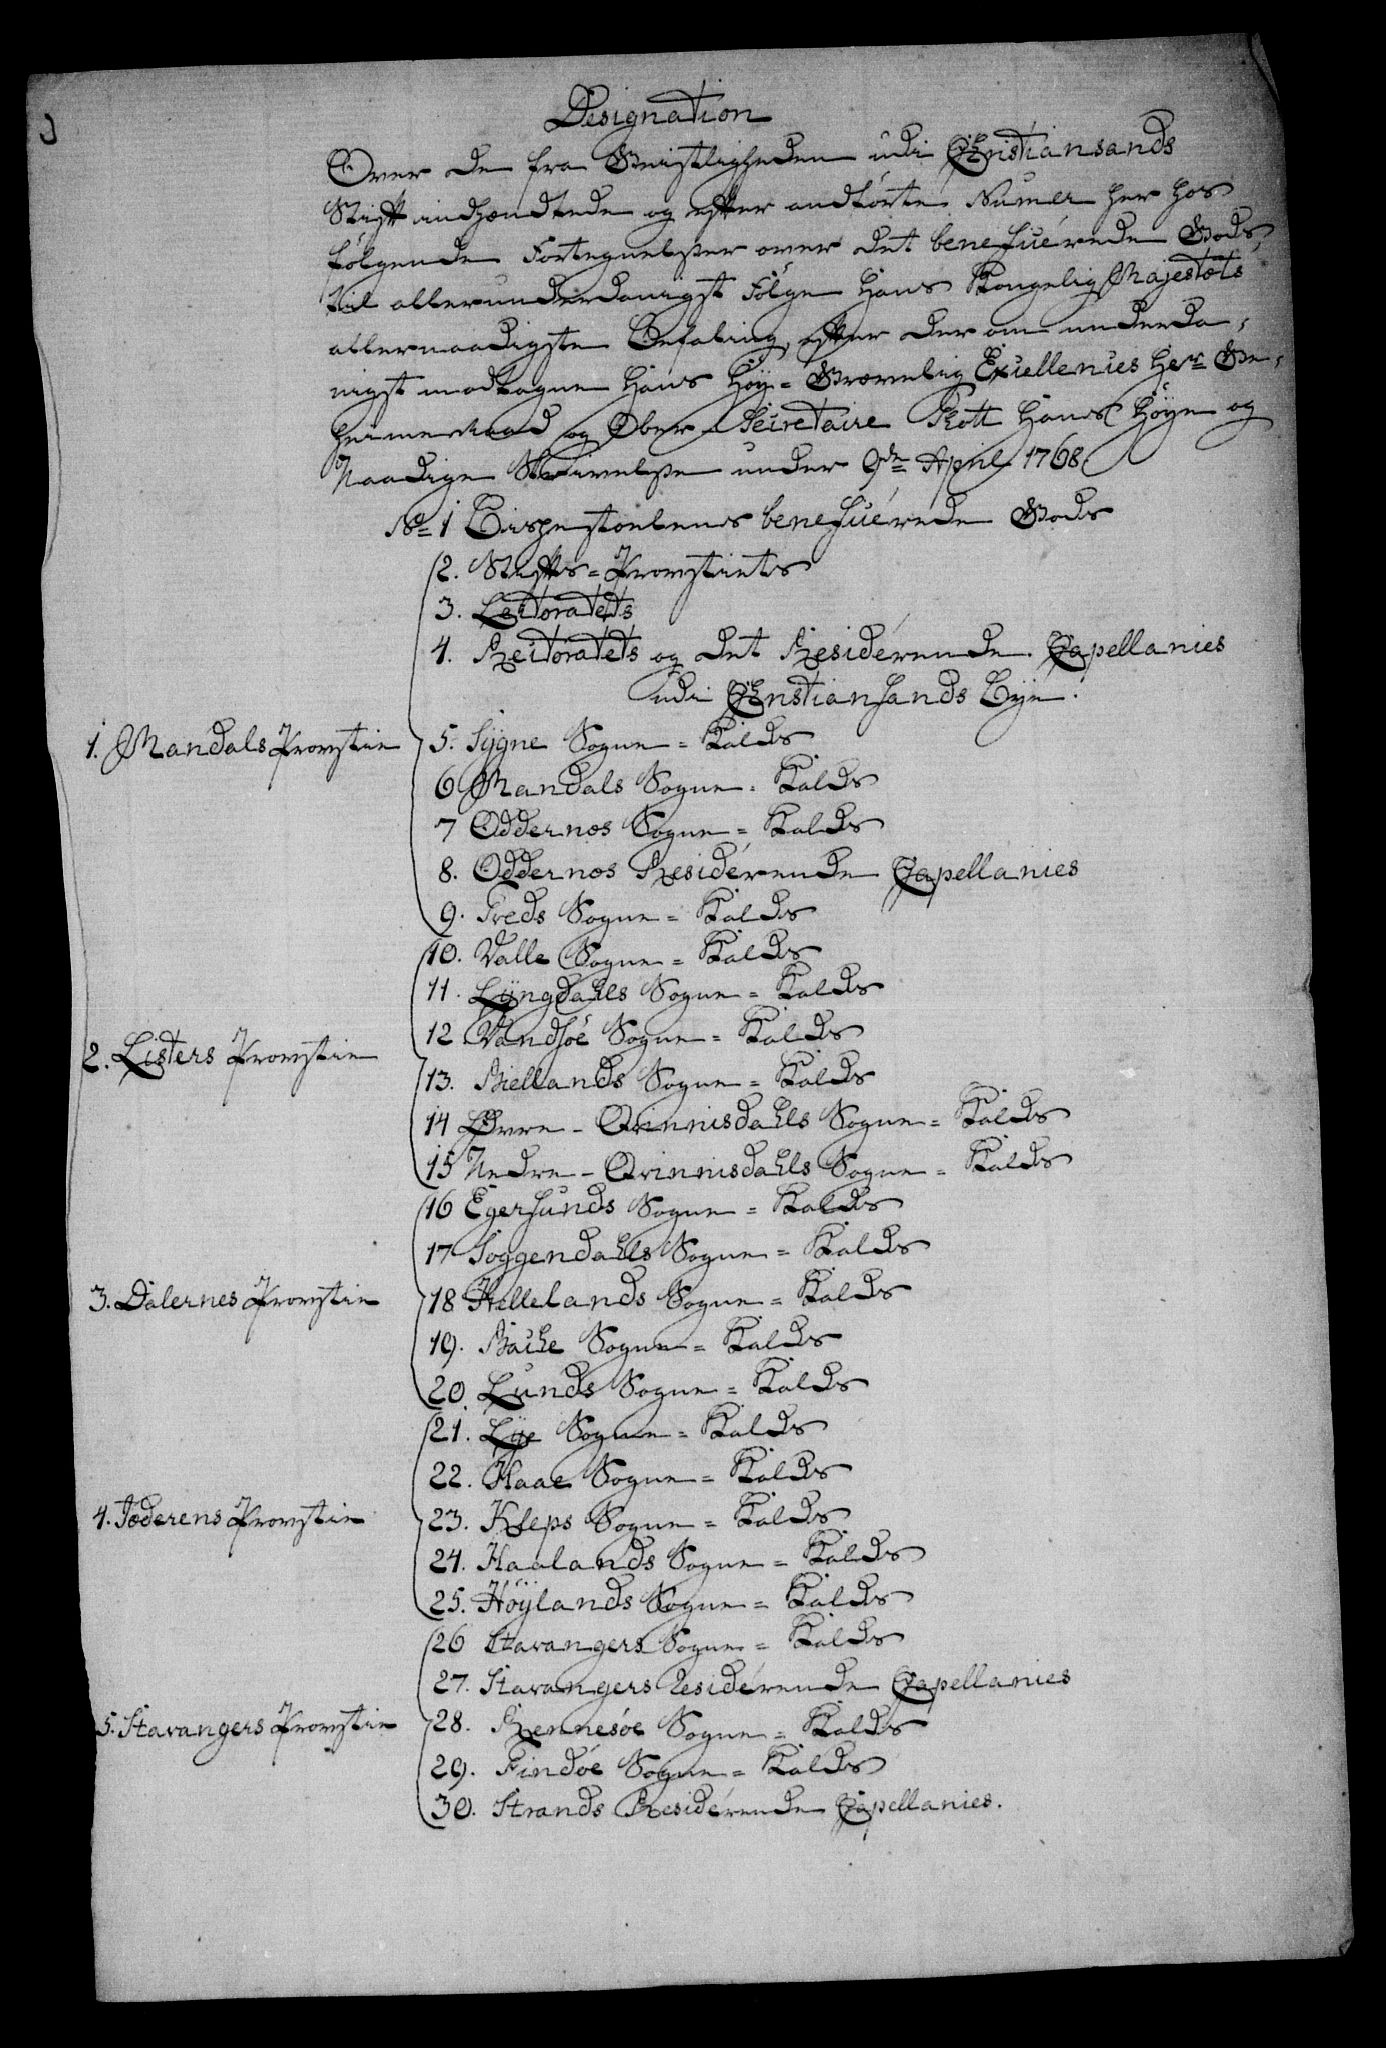 Designation
Over de fra Geistligheden udi Christiansands
Stift indhændtede og efter andførte Numer her hos
følgende Fortegnelsser over det beneficérede Gods,
til allerunderdanigst Følge Hans Kongelig Majestæts
allernaadigste Befaling, efter der om underda-
nigst modtagne Hans Høy-Grævelig Excellences Herr Ge-
heimeraad og Ober-Secretaire Skott Hans Høye og
Naadige Skrivelsse under 9de April 1768.
No 1 Bispestoelens beneficérede Gods
2. Stifts-Provstiets
3. Lectoratets
4. Rectoratets og det Residérende Capellanies
udi Christiansands Bye.
1. Mandals Provstie
5. Sygne Sogne-Kalds
6 Mandals Sogne-Kalds
7 Oddernæs Sogne-Kalds
8. Oddernæs Residérende Capellanies
9. Treds Sogne-Kalds
10. Valle Sogne-Kalds
11. Lyngdahls Sogne-Kalds
12 Vandsöe Sogne-Kalds
2. Listers Provstie
13. Biellands Sogne-Kalds
14 Øvre-Qvinnisdahls Sogne-Kalds
15 Nedre-Qvinnisdahls Sogne-Kalds
16 Egersunds Sogne-Kalds
17 Soggendahls Sogne-Kalds
3. Dalernes Provstie
18 Hellelands Sogne-Kalds
19. Bache Sogne-Kalds
20. Lunds Sogne-Kalds
21. Lye Sogne-Kalds
22. Haae Sogne-Kalds
4. Jæderens Provstie
23. Kleps Sogne-Kalds
24. Haalands Sogne-Kalds
25. Höylands Sogne-Kalds
26 Stavangers Sogne-Kalds
27. Stavangers Residérende Capellanies
5. Stavangers Provstie
28. Rennesöe Sogne-Kalds
29. Findöe Sogne-Kalds
30. Strands Residérende Capellanies.